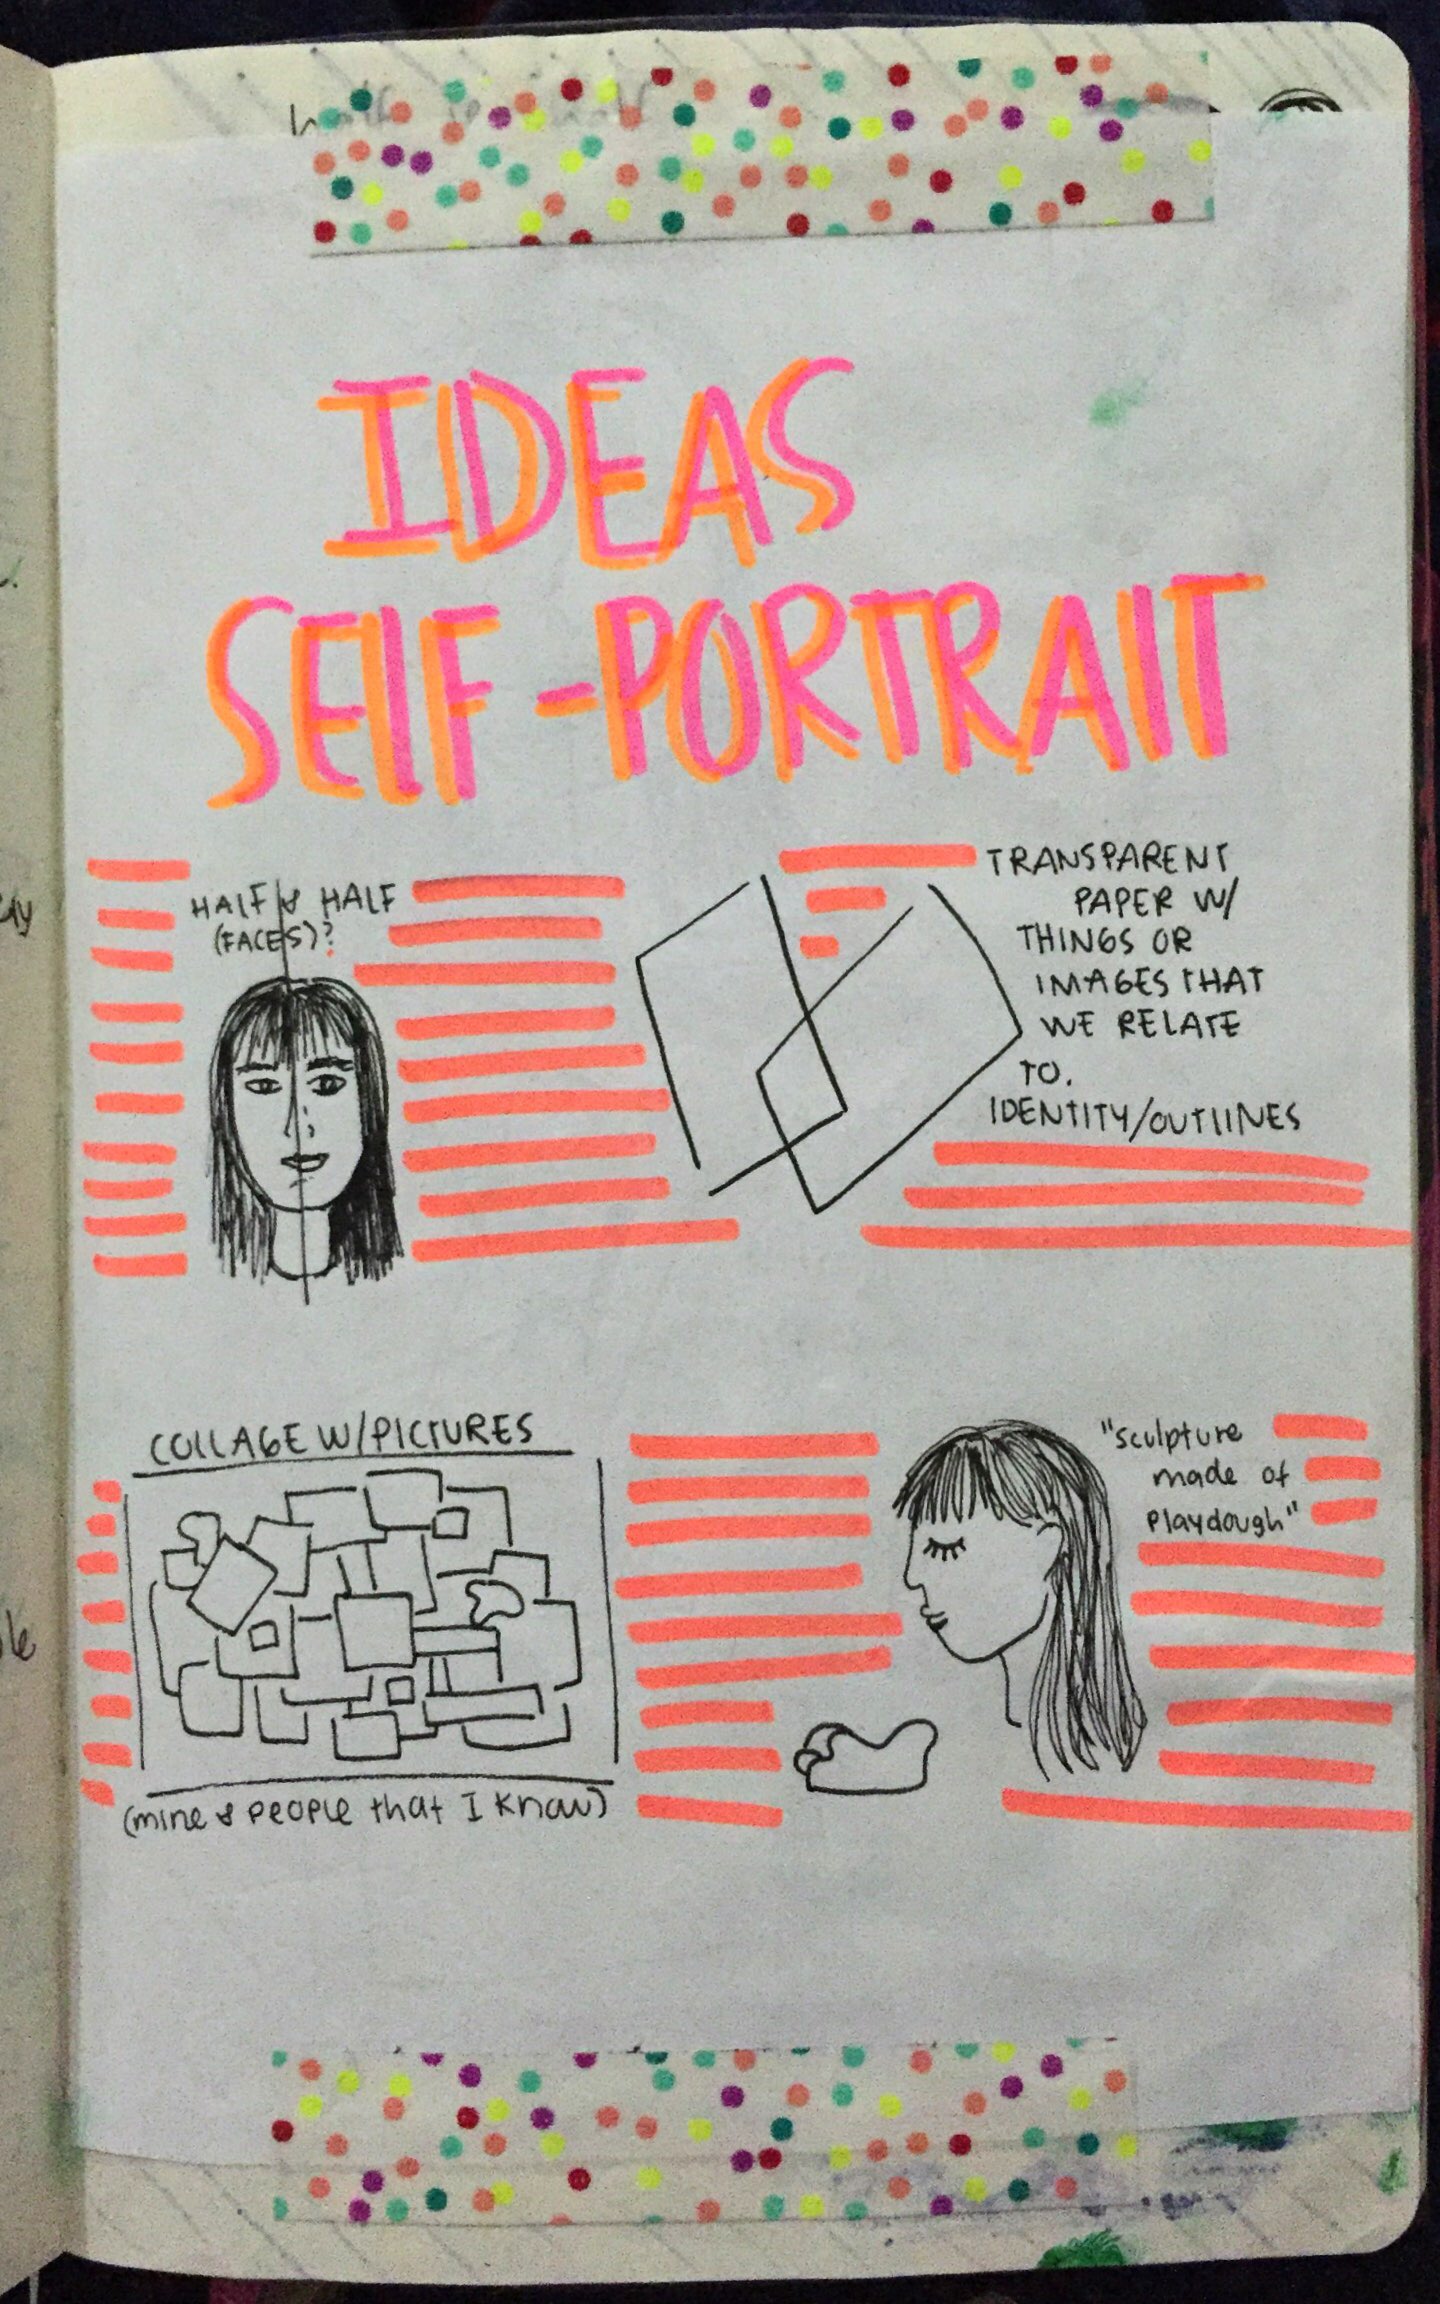 IDEAS
SELF-PORTRAIT
HALF & HALF
(FACES)?
TRANSPARENT
PAPER W/
THINGS OR
IMAGES THAT
WE RELATE
TO.
IDENTITY/OUTLINES
COLLAGE W/PICTURES
(mine & PEOPLE that I know)
"sculpture
made of
playdough"